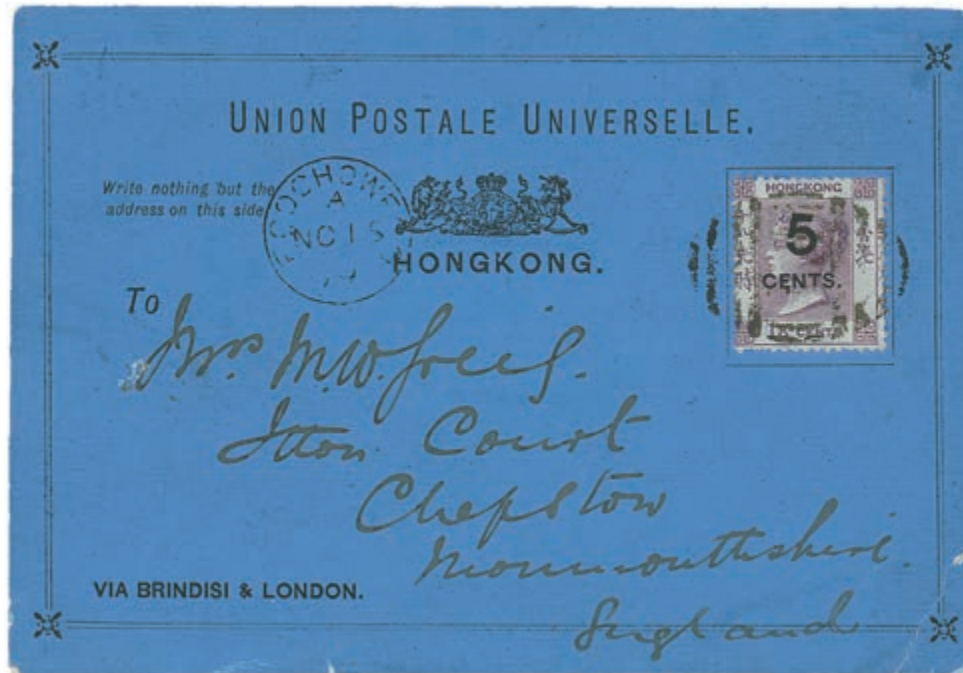 UNION POSTALE UNIVERSELLE.
Write nothing but the
address on this side
FOOCHOWFOO
A
NO 15
79
HONGKONG.
HONGKONG
5
CENTS.
To
Mrs. M.W. Greig.
Itton Court
Chepstow
Monmouthshire.
England
VIA BRINDISI & LONDON.